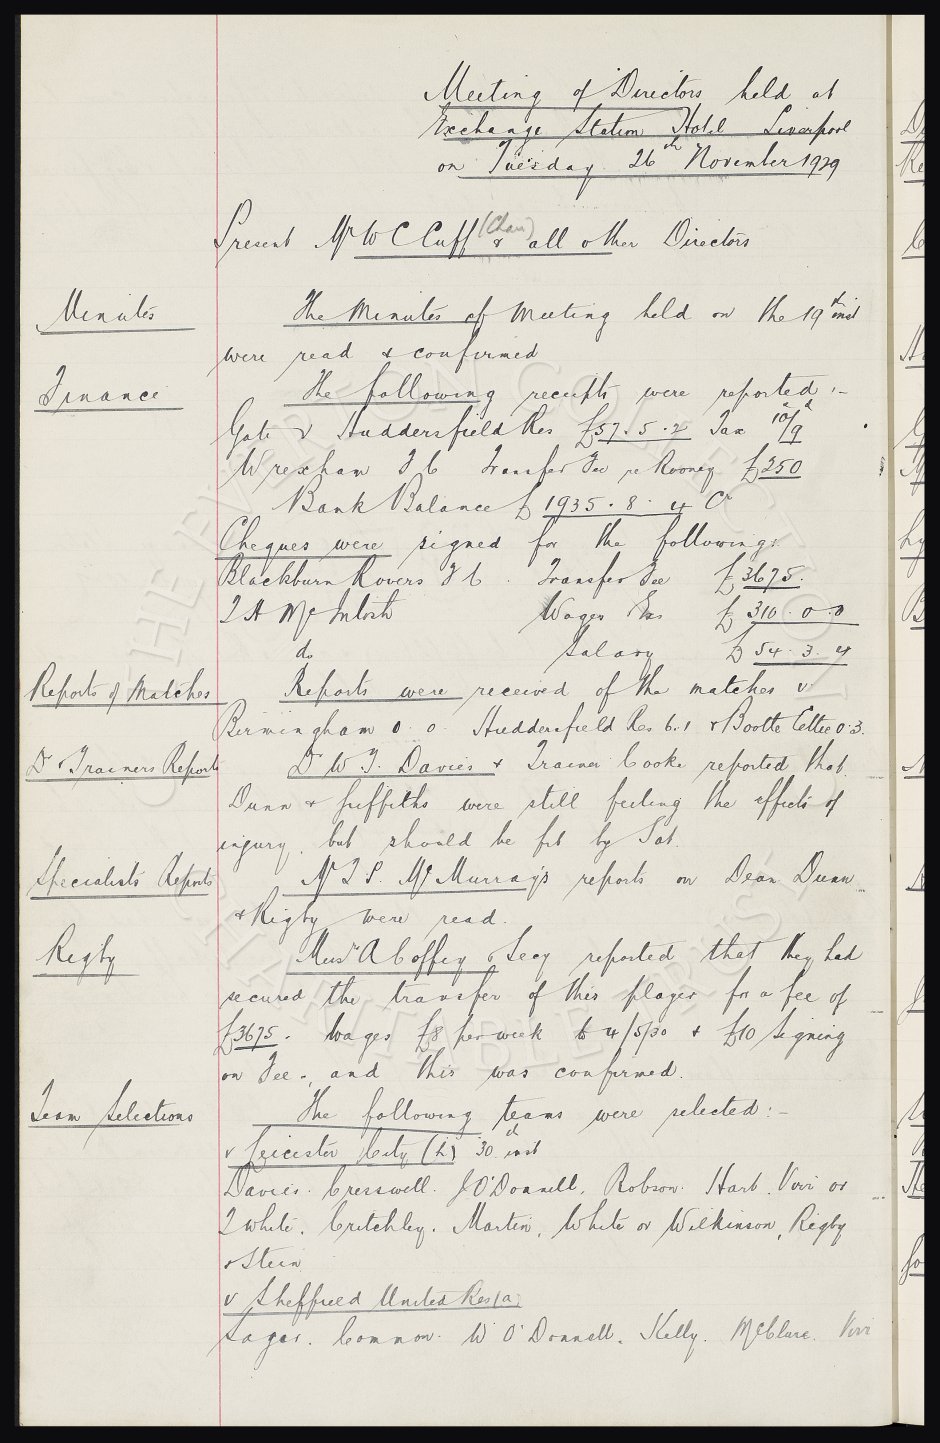 Meeting of Directors held at
Exchange Station Hotel Liverpool
on Tuesday 26th November 1929
Present Mr W C Cuff (Chair) & all other Directors
Minutes The Minutes of Meeting held on the 19th inst
were read & confirmed
Finance The following receipts were reported :-
Gate v Huddersfield Res £57.5.2 Tax 10d/9
Wrexham F C Transfer Fee re Rooney £250
Bank Balance £1935.8.4 Cr
Cheques were signed for the following:
Blackburn Rovers F C. Transfer Fee £3675.
T H McIntosh Wages £310.0.0
do Salary £54.3.4
Reports of Matches Reports were received of the matches v
Birmingham 0.0. Huddersfield Res 6.1 & Bootle Celtic 0.3.
Dr & Trainers Reports Dr W. F. Davies & Trainer Cooke reported that
Dunn & Griffiths were still feeling the effects of
injury, but should be fit by Sat.
Specialists Reports Mr T. S. McMurray's reports on Dean Dunn
& Rigby were read.
Rigby Messrs A Coffey & Secy reported that they had
secured the transfer of this player for a fee of
£3675. Wages £8 per week to 4/5/30 & £10 signing
on Fee., and this was confirmed.
Team Selections The following teams were selected :-
v Leicester City (h) 30th inst
Davies. Cresswell. J O'Donnell. Robson. Hart. Virr or
T White. Critchley. Martin, White or Wilkinson, Rigby
& Stein
v Sheffield United Res (a)
Sagar. Common. W O'Donnell. Kelly. McClure. Virr
THE EVERTON COLLECTION
CHARITABLE TRUST